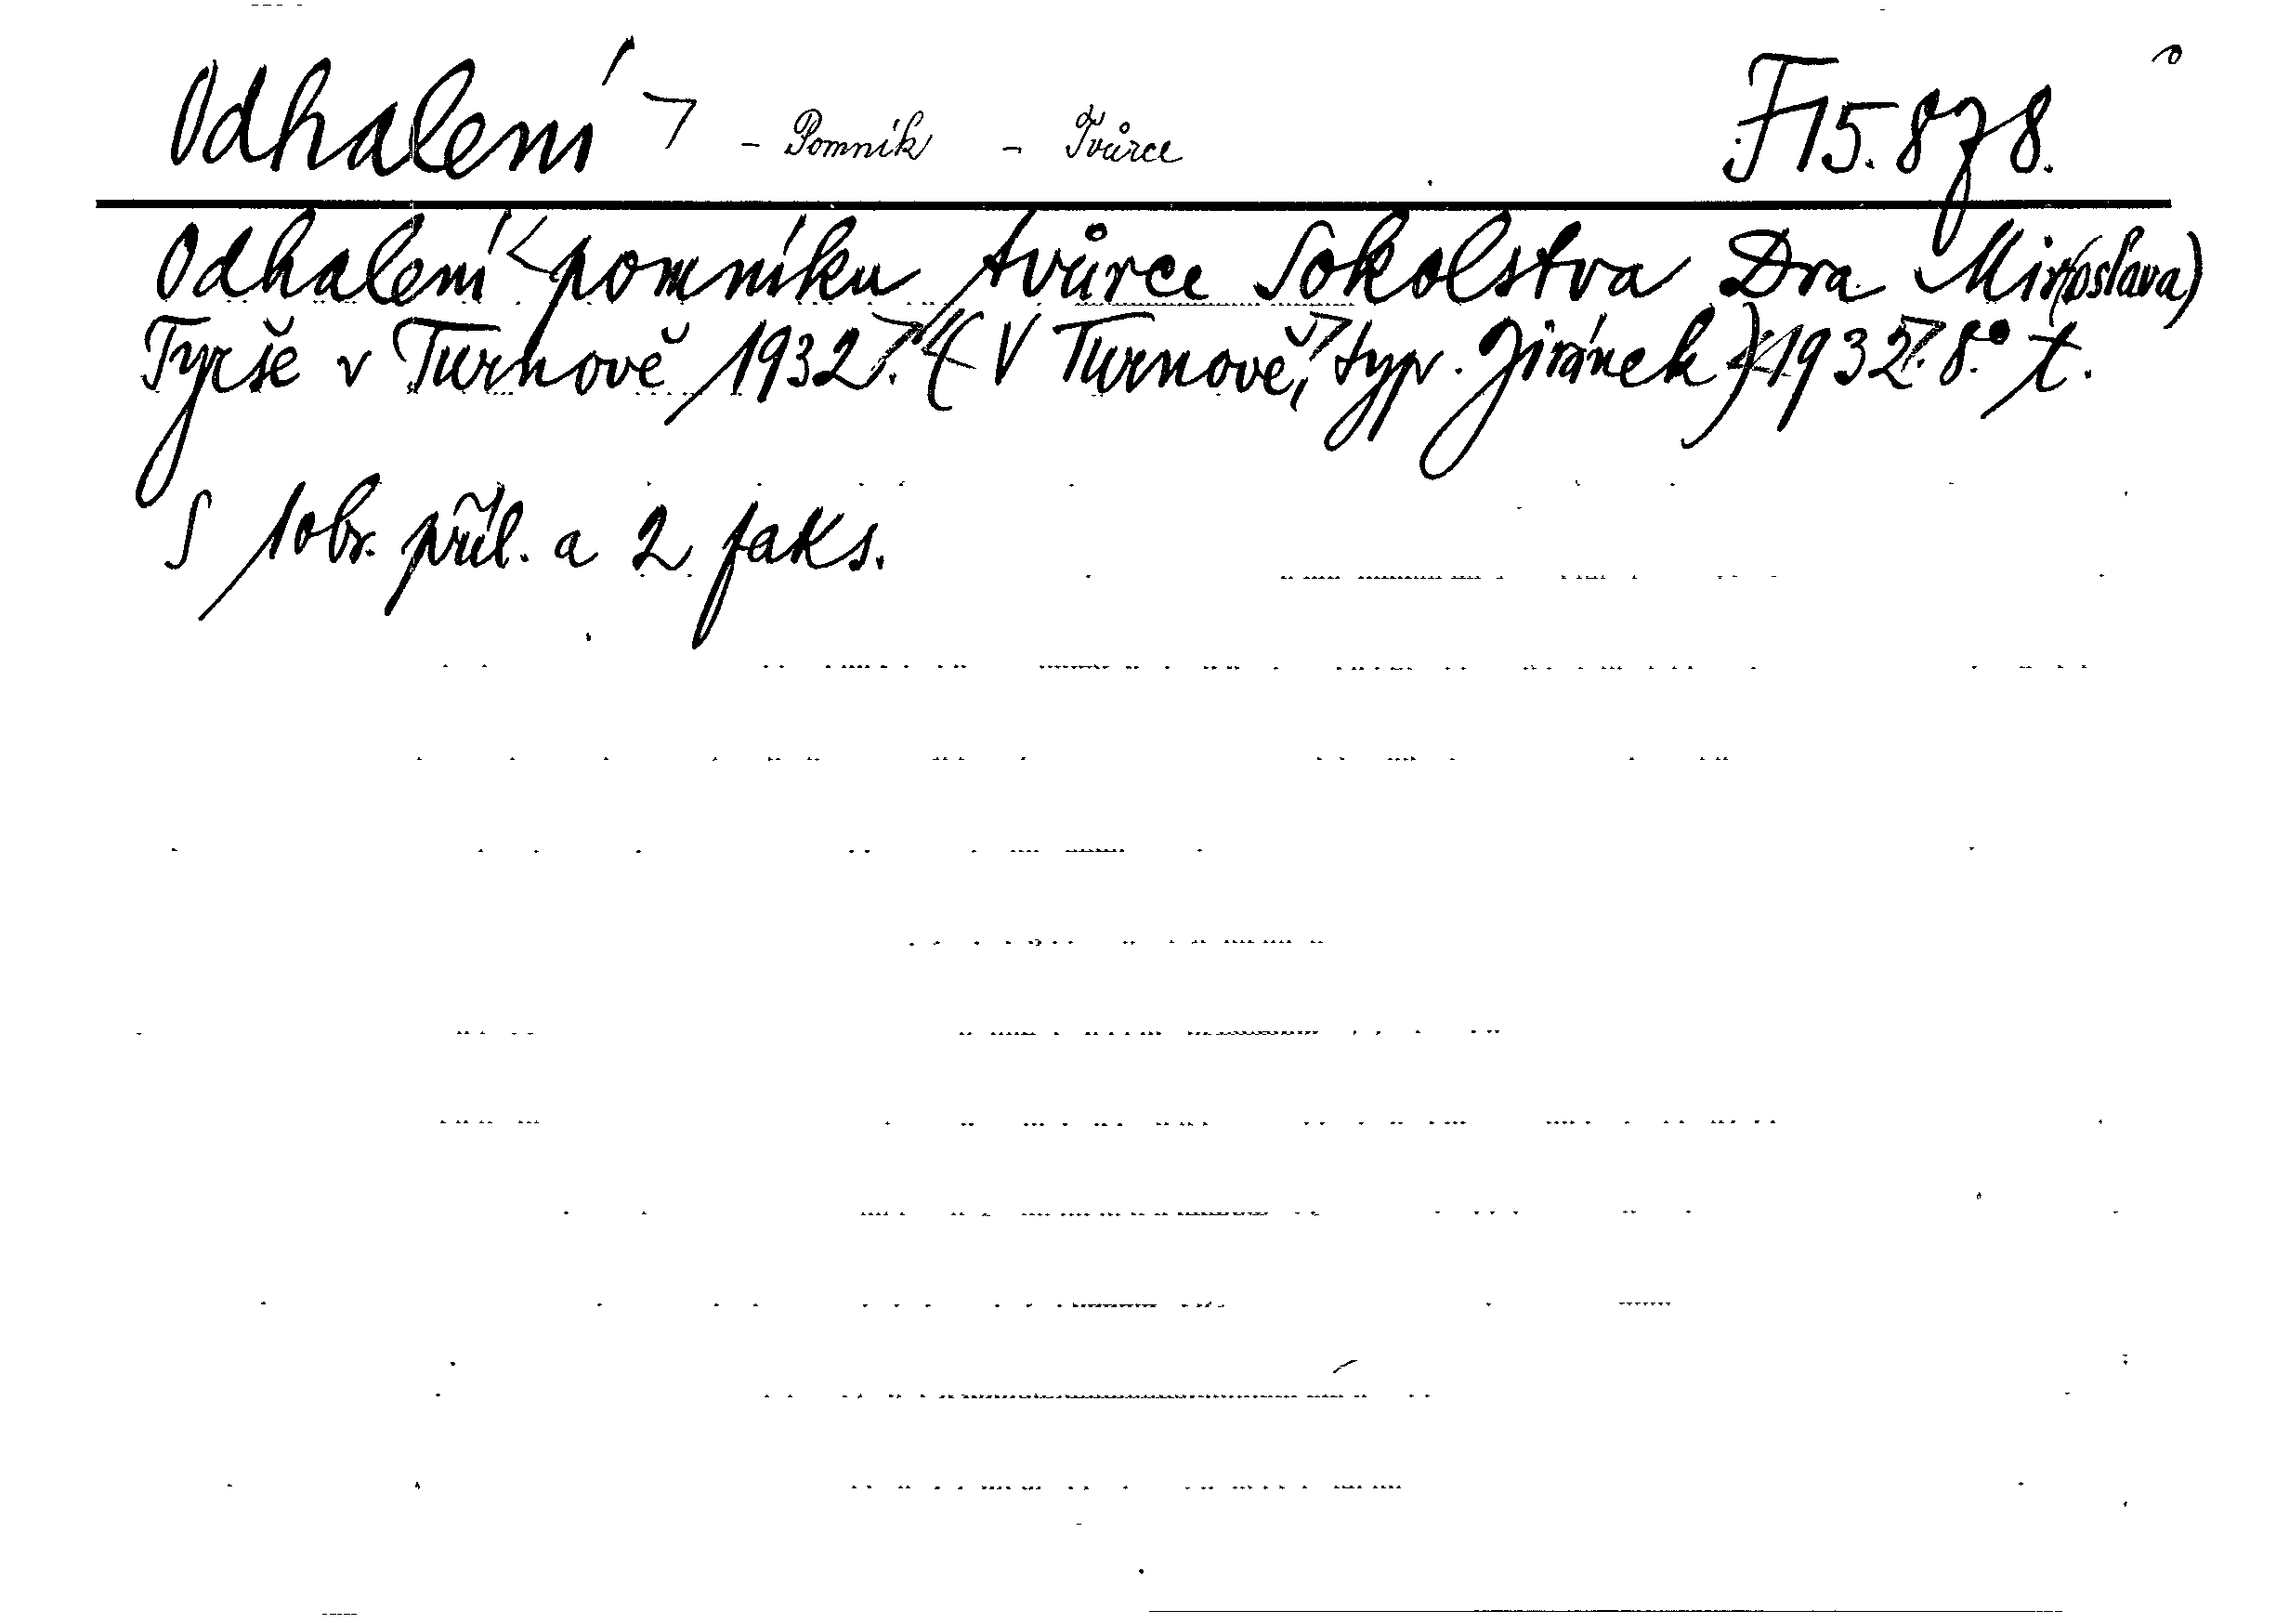 Odhalení - Pomník - Tvůrce F 15.878.
Odhalení pomníku tvůrce Sokolstva Dra Mir(oslava)
Tyrše v Turnově 1932. (V Turnově, typ. Jiránek) 1932. 8° t.
S 1 obr. příl. a 2 faks.